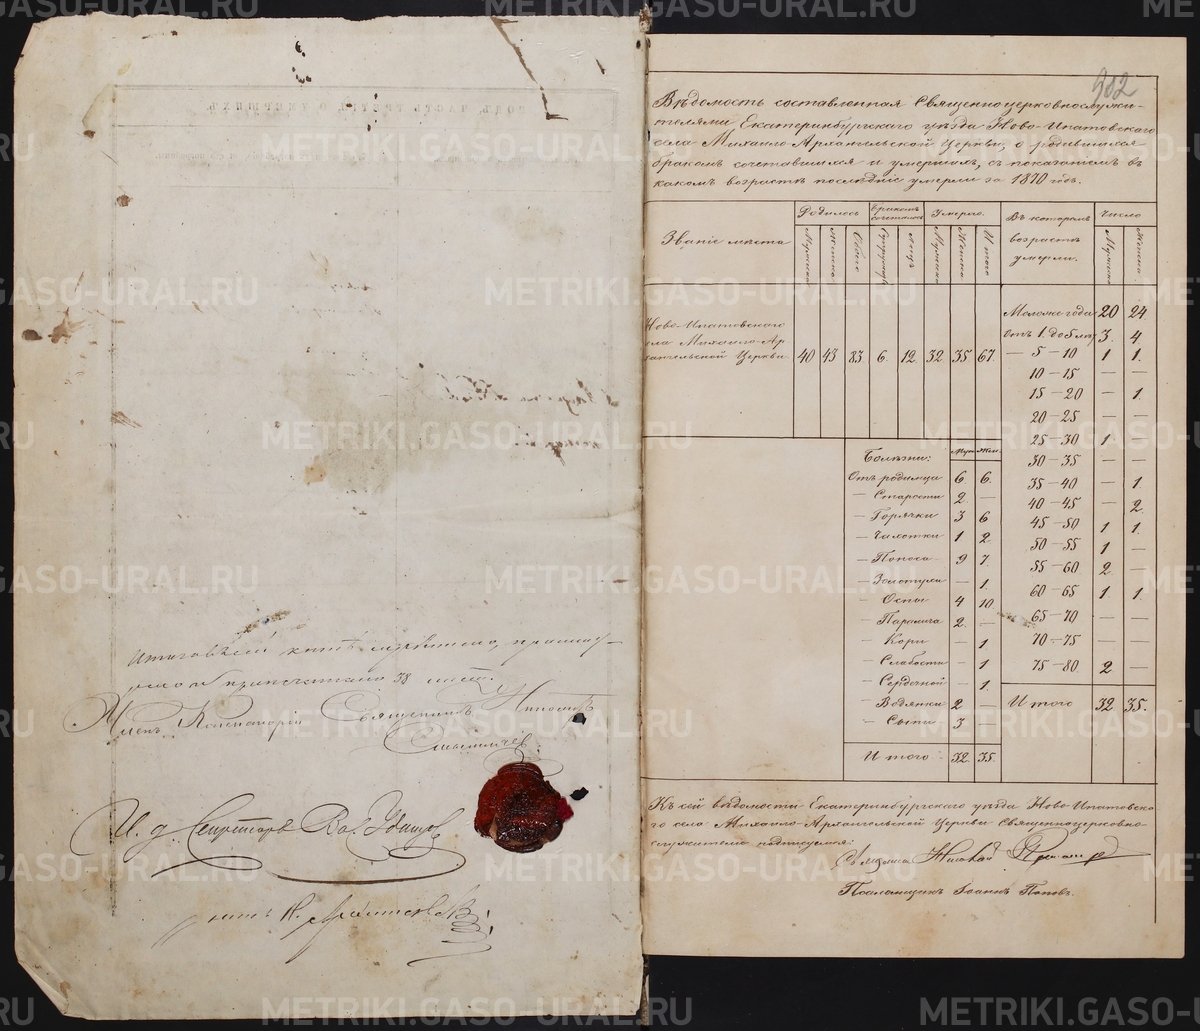 Итого въ сей книгѣ
Членъ Консисторіи Священникъ
И. д. Секретаря
902
Вѣдомость составленная Священноцерковнослужи-
телями Екатеринбургскаго уѣзда Ново-Ипатовскаго
села Михаило-Архангельской Церкви, о родившихся
бракомъ сочетавшихся и умершихъ, съ показаніемъ въ
какомъ возрастѣ послѣдніе умерли за 1870 годъ.
Званіе мѣста
Родилось
Бракомъ сочеталось
Умерло.
Въ которомъ возрастѣ умерли.
Число
Мужска Женска Обоего
Мужска Женска Итого
Мужска Женска
Ново-Ипатовскаго
села Михаило-Ар
хангельской Церкви
40 43 83. 6. 12. 32. 35. 67.
Моложе года 20 24
Отъ 1 до 5 лѣт 3. 4
— 5—10 1 1.
10—15 — —
15—20 — 1.
20—25 — —
25—30 1 —
30—35 — —
35—40 — 1
40—45 — 2.
45—50 1 1.
50—55 1 —
55—60 2 —
60—65 1 1.
65—70 — —
70—75 — —
75—80 2 —
Итого 32. 35.
Болѣзни: Муж Жен:
Отъ родимца 6 6.
— Старости 2 —
— Горячки 3 6
— Чахотки 1 2
— Поноса 9 7.
— Золотухи — 1.
— Оспы 4 10.
— Паралича 2. —
— Кори — 1
— Слабости — 1
— Сердечной — 1.
— Водянки 2 —
— Сыпи 3
Итого 32. 35.
Къ сей вѣдомости Екатеринбургскаго уѣзда Ново-Ипатовска
го села Михаило-Архангельской Церкви Священноцерковно-
служители подписуемся:
Псаломщикъ Іоаннъ Поповъ.
METRIKI.GASO-URAL.RU